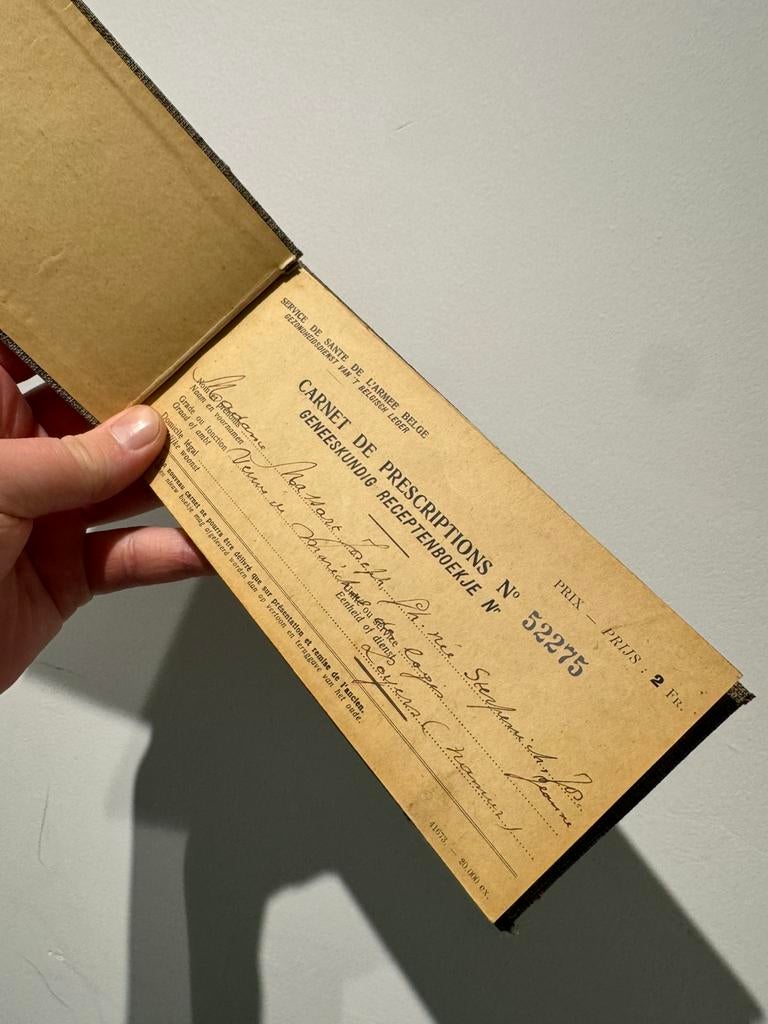 SERVICE DE SANTE DE L'ARMEE BELGE
GEZONDHEIDSDIENST VAN 'T BELGISCH LEGER
CARNET DE PRESCRIPTIONS N° 52275
GENEESKUNDIG RECEPTENBOEKJE Nr
PRIX — PRIJS : 2 FR.
Nom et prénoms
Naam en voornamen
Madame Massart Joseph, Ph. née Stefpenich, Jos.
Jeanne
Grade ou fonction
Graad of ambt
Veuve de
Unité ou service
Eenheid of dienst
Domicile légal
Wettelijke woonst
Loyers (Namur)
nouveau carnet ne pourra être délivré que sur présentation et remise de l'ancien.
nieuw boekje mag afgeleverd worden dan op vertoon en teruggave van het oude.
41673. — 20.000 ex.